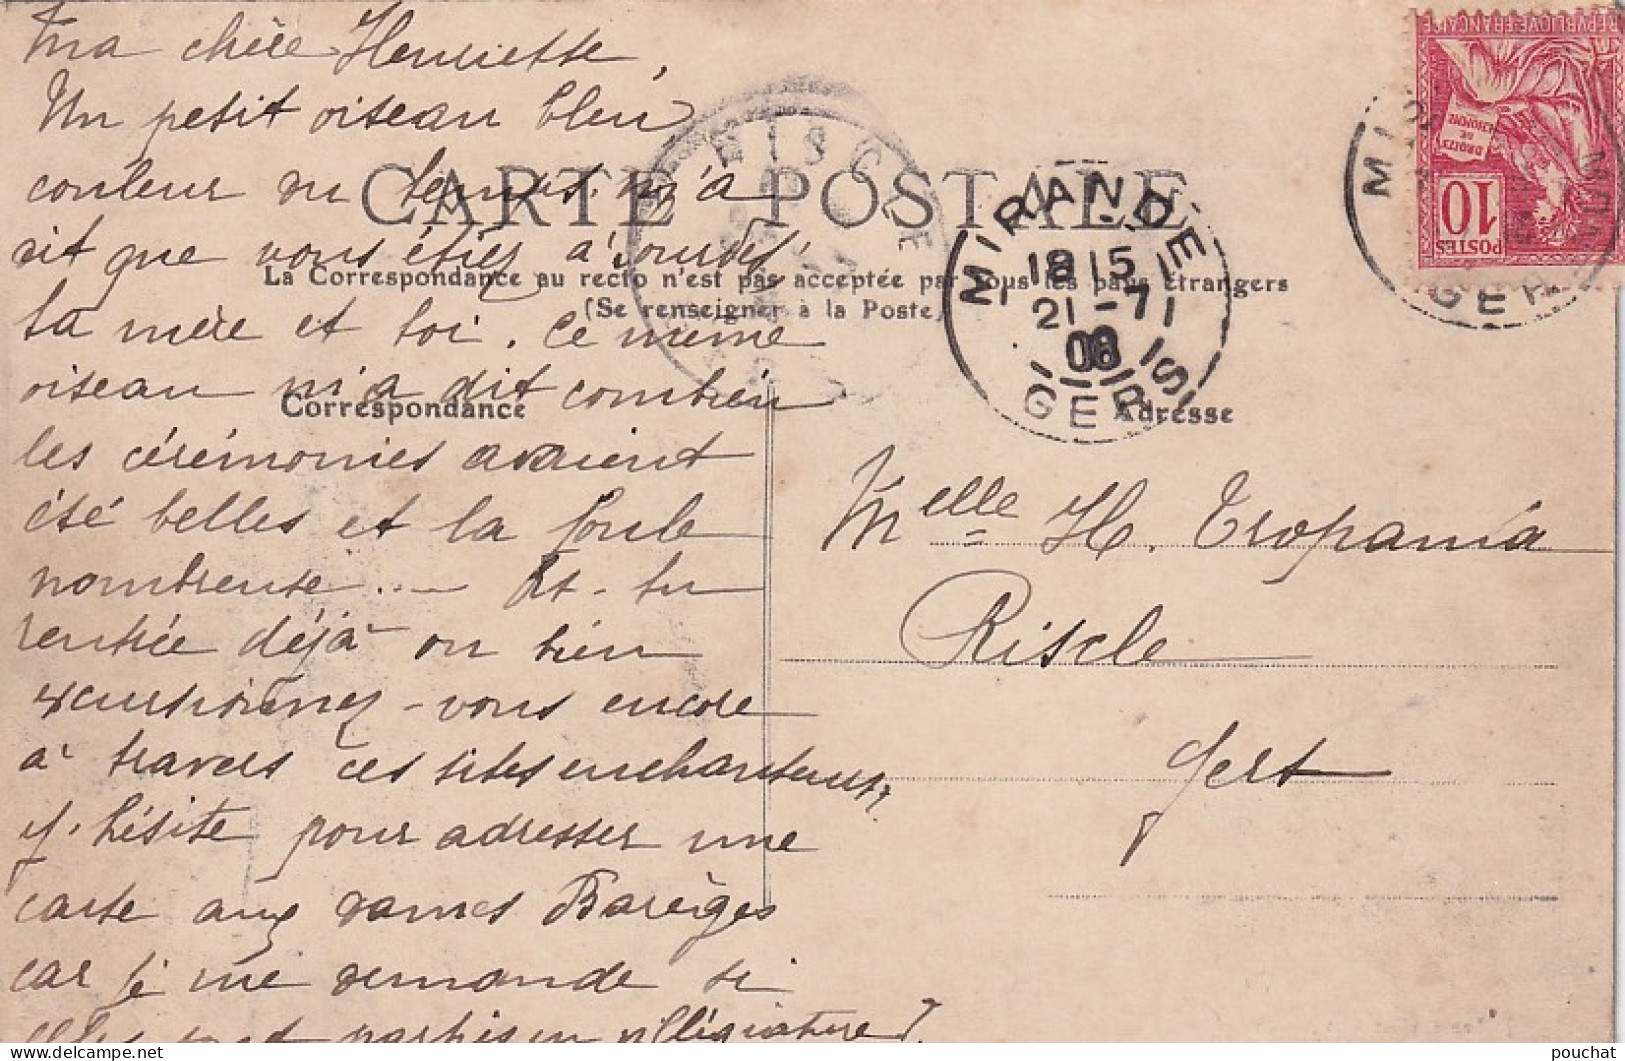 Ma chère Henriette,
Un petit oiseau bleu
couleur du temps m'a
dit que vous étiez à Lourdes
ta mère et toi. Ce même
oiseau m'a dit combien
les cérémonies avaient
été belles et la foule
nombreuse... — Es-tu
rentrée déjà ou bien
excursionnez-vous encore
à travers ces sites enchanteurs?
J'hésite pour adresser une
carte aux dames Barèges
car je me demande si
elles sont parties en villégiature?
CARTE POSTALE
La Correspondance au recto n'est pas acceptée par tous les pays étrangers
(Se renseigner à la Poste)
Correspondance
Adresse
Melle H. Tropamia
Riscle
Gers
RISCLE
MIRANDE
18 15
21-7
08
GERS
MI
GERS
REPUBLIQUE FRANÇAISE
DROITS DE L'HOMME
10
POSTES
pouchat